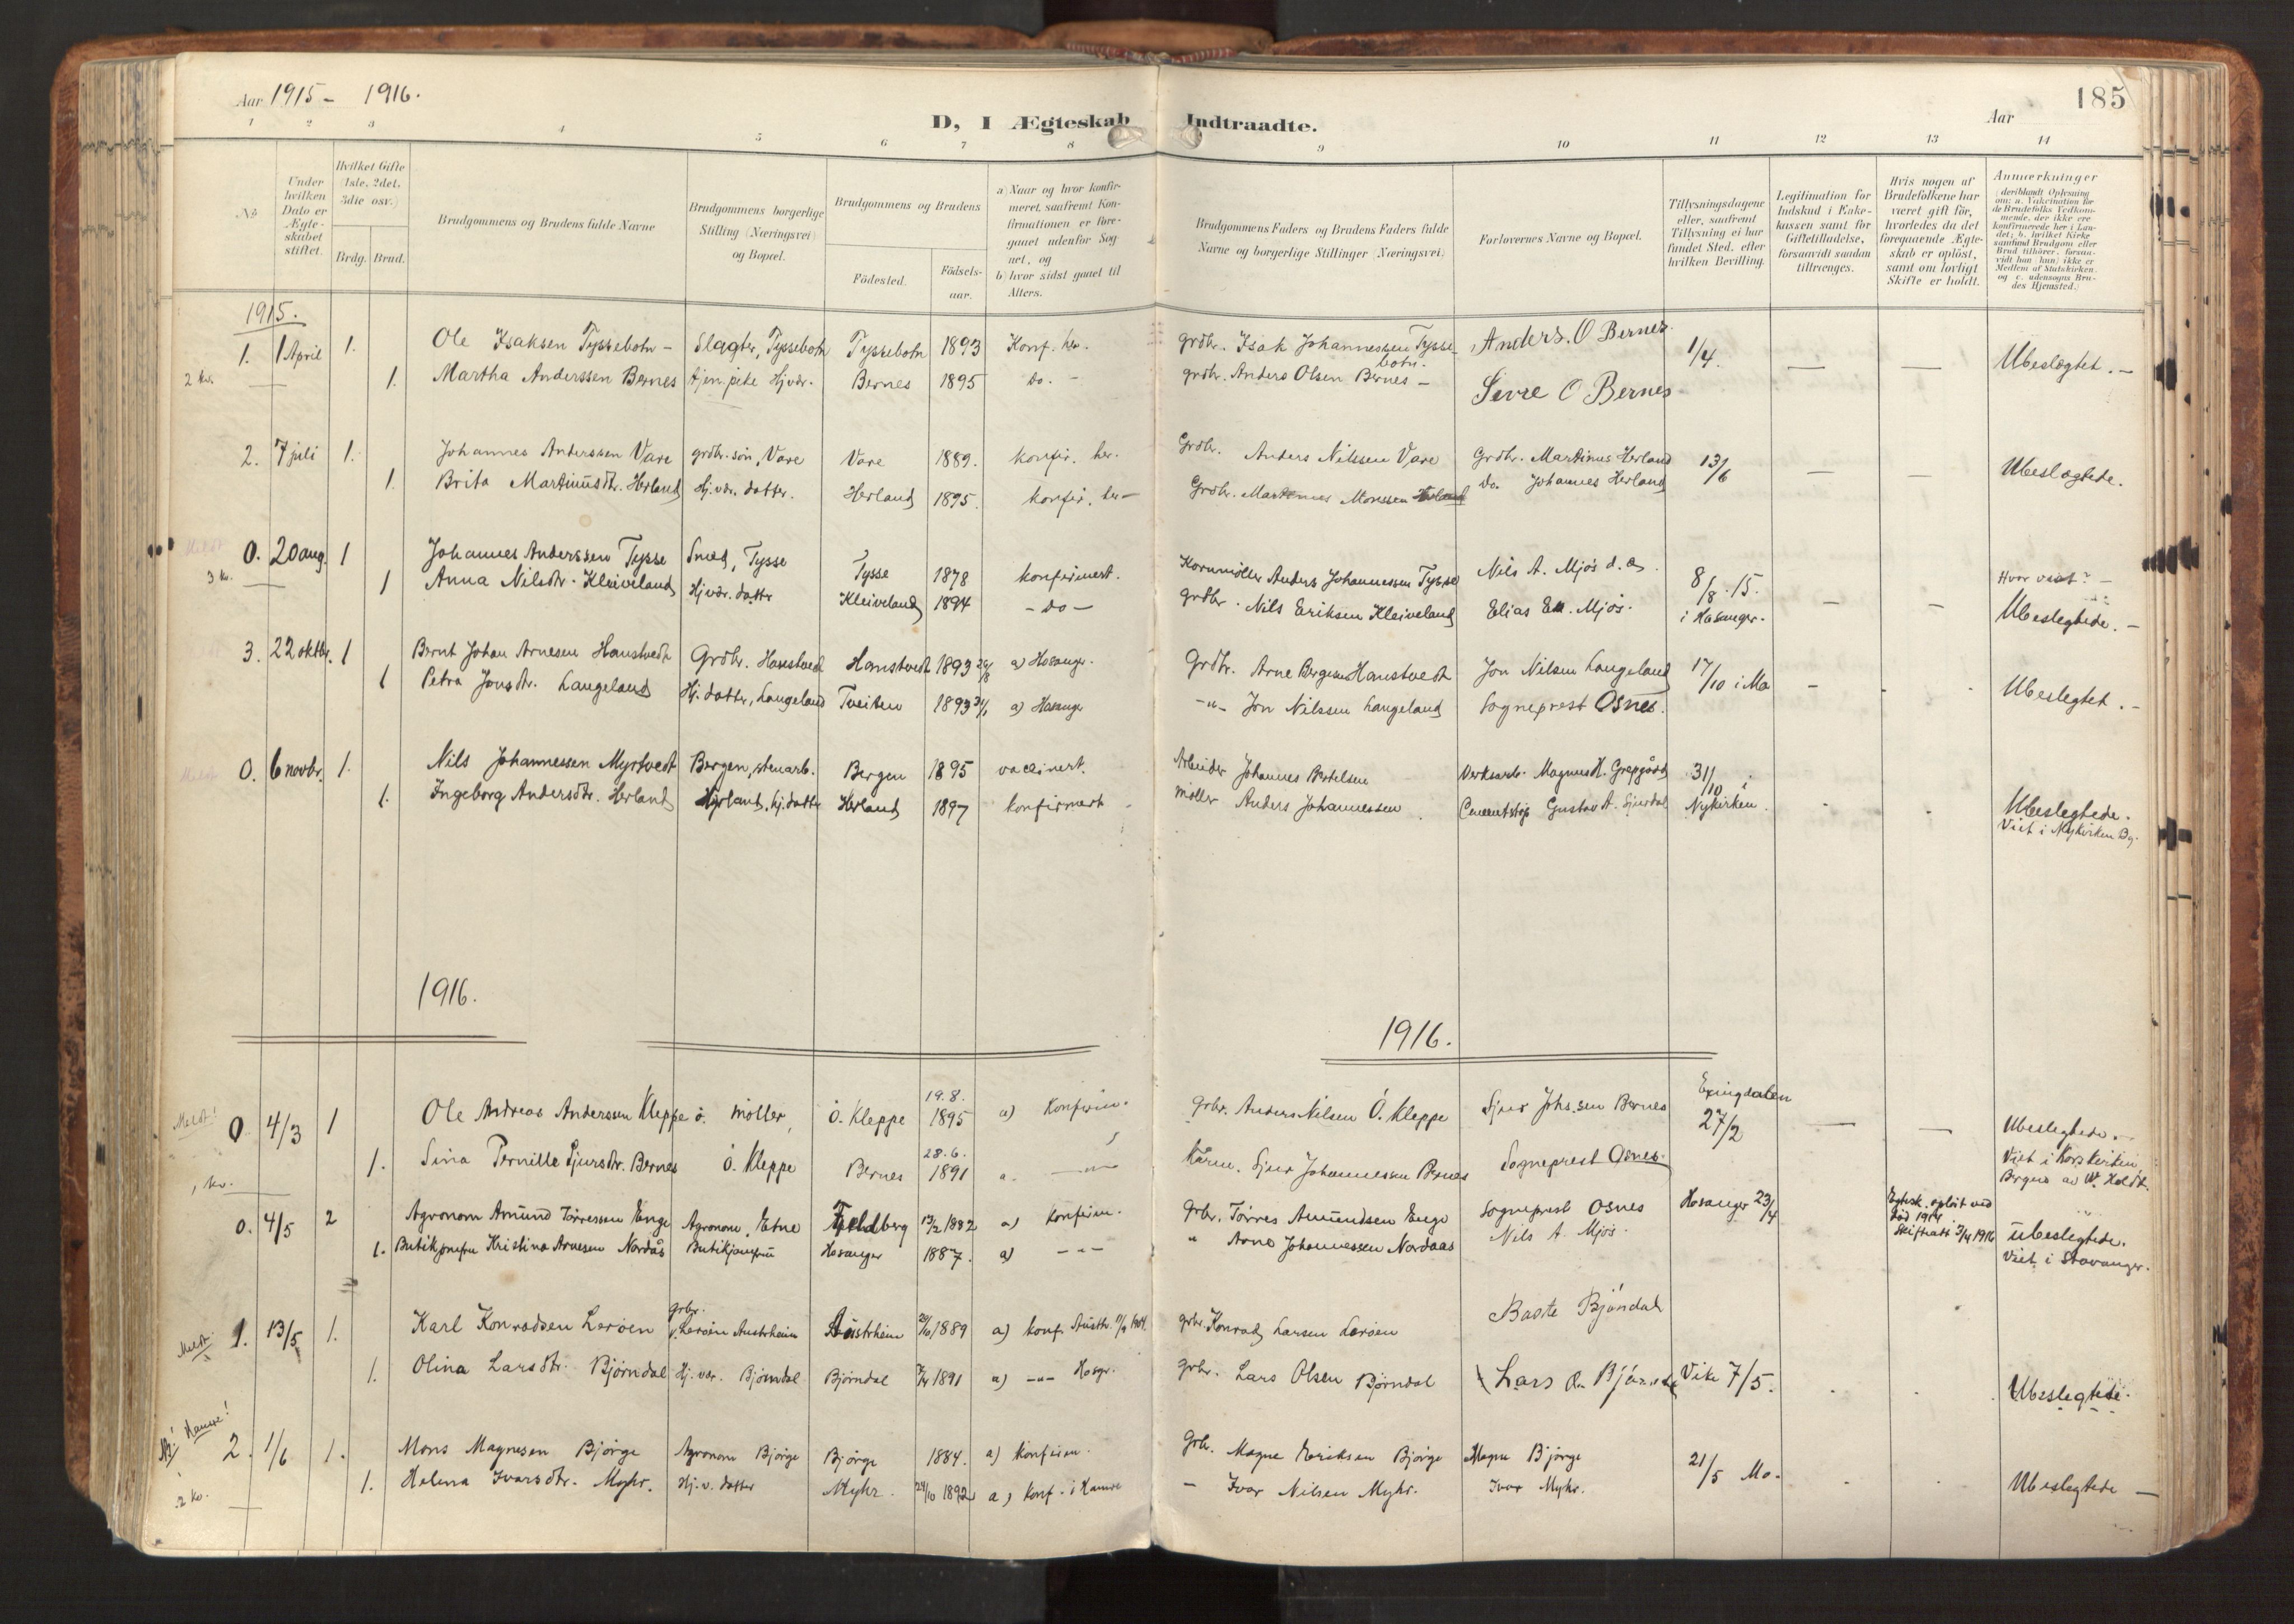 Aar 1915 - 1916.
185
D, I Ægteskab Indtraadte.
Aar
1 2 3 4 5 6 7 8 9 10 11 12 13 14
No
Under hvilken Dato er Ægte-skabet stiftet.
Hvilket Gifte (1ste, 2det, 3die osv.)
Brdg. Brud.
Brudgommens og Brudens fulde Navne
Brudgommens borgerlige Stilling (Næringsvei) og Bopæl.
Brudgommens og Brudens
Födested.
Födsels-aar.
a) Naar og hvor konfir-meret, saafremt Kon-firmationen er fore-gaaet udenfor Sog-net, og
b) hvor sidst gaaet til Alters.
Brudgommens Faders og Brudens Faders fulde Navne og borgerlige Stillinger (Næringsvei)
Forlovernes Navne og Bopæl.
Tillysningsdagene eller, saafremt Tillysning ei har fundet Sted, efter hvilken Bevilling.
Legitimation for Indskud i Enke-kassen samt for Giftetilladelse, forsaavidt saadan tiltrænges.
Hvis nogen af Brudefolkene har været gift för, hvorledes da det foregaaende Ægte-skab er oplöst, samt om lovligt Skifte er holdt.
Anmærkninger (deriblandt Oplysning om: a. Vakcination for de Brudefolks Vedkom-mende, der ikke ere konfirmerede her i Lan-det; b. hvilket Kirke-samfund Brudgom eller Brud tilhører, forsaa-vidt han (hun) ikke er Medlem af Statskirken, og c. udensogns Bru-des Hjemsted.)
1915.
1. 1 April 1. Ole Isaksen Tyssebotn - Slagter, Tyssebotn Tyssebotn 1893 Konf. her. grdbr. Isak Johannessen Tyssebotn. Anders. O Bernes. 1/4. — — Ubeslegtet. -
2 kr. 1. Martha Anderssen Bernes tjen.pike Hj.vær. Bernes 1895 Do. - grdbr. Anders Olsen Bernes - O Bernes
2. 7 juli 1. Johannes Anderssen Vare grdbr. søn, Vare Vare 1889. konfir. her. Grdbr. Anders Nilssen Vare Grdbr. Martinus Herland 13/6 — — Ubeslægtede.
1. Brita Martinusdtr. Herland Hj.vær. datter. Herland 1895. konfir. her - Grdbr. Martinus Monssen Herland do. Johannes Herland
0. 20 aug. 1 Johannes Anderssen Tysse Smed, Tysse Tysse 1878 konfirmert. Kornmøller Anders Johannessen Tysse Nils A. Mjøs 8/8. 15. Hvor viet? -
3 kr. 1 Anna Nilsdtr. Kleiveland Hj.vær. datter Kleiveland 1894 - do - grdbr. Nils Eriksen Kleiveland Elias Mjøs. i Hosanger. — — Ubeslegtede. -
3. 22 oktbr. 1 Bernt Johan Arnesen Hanstvedt Grdbr. Hanstvedt Hanstvedt 1893 a) Hosanger. Grdbr. Arne Hanstvedt Jon Nilsen Langeland 17/10 i Mo - - - Ubeslegtet. -
1 Petra Jonsdtr. Langeland Hj. datter, Langeland Tveiten 1893 a) Hosanger -"- Jon Nilssen Langeland Sogneprest Osnes.
0. 6 novbr. 1. Nils Johannessen Myrtvedt Bergen, stenarb. Bergen 1895 vaccinert. Arbeider Johannes Bertelsen Verksarb. Magnus H. 31/10 i
1. Ingeborg Andersdtr. Herland Herland, hj. datter Herland 1897 konfirmert Møller Anders Johannessen Gustav A. Nykirken. - - Ubeslegtede.
Viet i Nykirken Bg.
1916.
1916.
Meldt! 0 4/3 1 Ole Andreas Anderssen Kleppe ö. møller, Ö. Kleppe 19.8. 1895 a) Konfirm. Grbr. Anders Nilsen Ö. Kleppe Sjur Johs.sen Bernes Exingdalen 27/2 — — Ubeslegtede.
1 kr. 1. Sina Pernille Sjursdtr. Bernes Ö. Kleppe Bernes 28.6. 1891 a. -"- Sjur Johannessen Bernes Sogneprest Osnes. Viet i Korskirken, Bergen av W. Koldt.
0. 4/5 2 Agronom Amund Tørressen Enge Agronom, Etne 1882 a) Konfirm. Grbr. Tørres Amundsen Enge Sogneprest Osnes Hosanger 23/4 Egtesk. opløst ved død 1914 Skifteatt. 3/4 1916 Ubeslegtede.
1. Butikjomfru Kristina Arnesen Nordås Butikjomfru Hosanger 1887. a) -"- " Arne Johannessen Nordaas Nils A. Mjøs. Viet i Stavanger.
Meldt. 1. 13/5 1. Karl Konradsen Lerøen grbr. Lerøen Austrheim Austrheim 1889 a) konf. Austr. grbr. Konrad Larsen Lerøen Baste Bjöndal
1. Olina Larsdtr. Bjørndal Hj.vær. Bjørndal Bjørndal 1891 a) -"- Hosgr. grbr. Lars Olsen Bjørndal Lars Vike 7/5. - - - Ubeslegtede.
Hamre! 2. 1/6 1. Mons Magnesen Bjørge Agronom Bjørge Bjørge 1884. a) konfirm. Grbr. Magne Eriksen Bjørge Magne Bjørge 21/5 Mo. - - Ubeslegtede -
2 kr. 1. Helena Ivarsdtr. Myhr. Hj. v. datter Myhr. 24/10 1892 a) konf. i Hamre - Ivar Nilsen Myhr. Ivar Myhr.